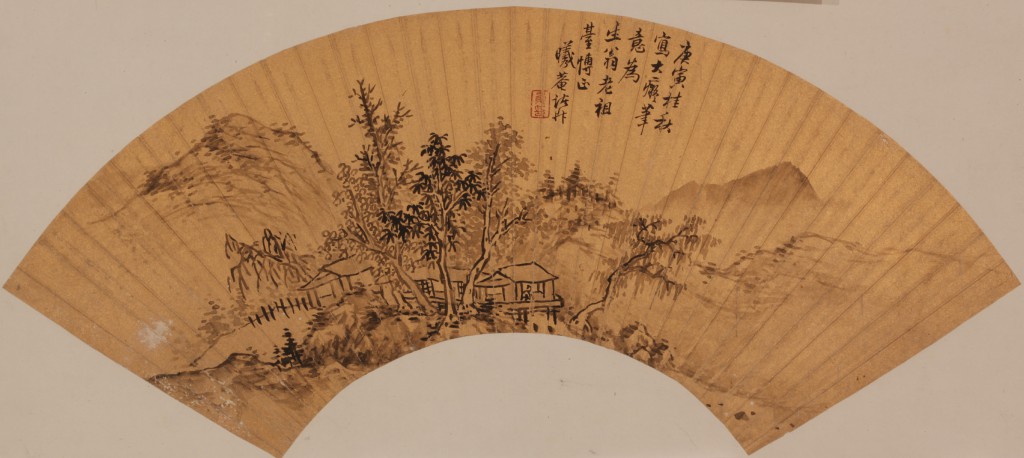 庚寅桂秋
寫大癡筆
意為
生翁老祖
臺博正
曦菴